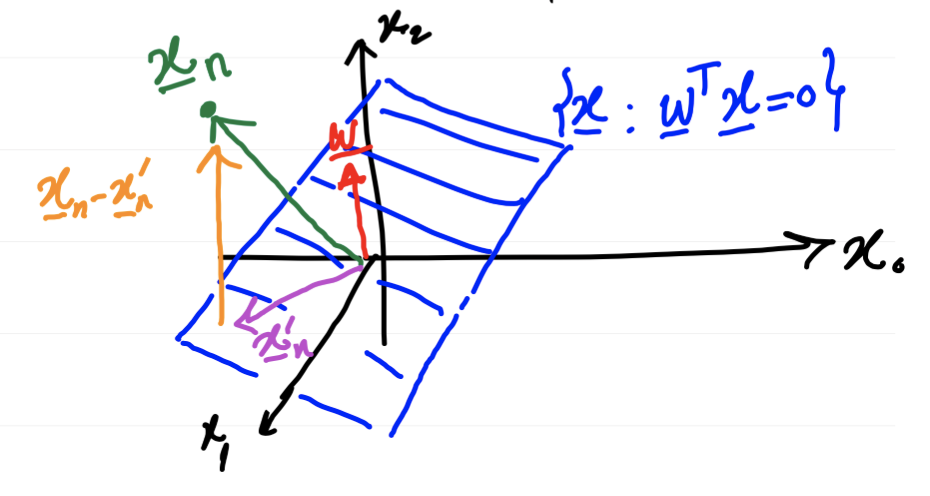 x₂
x̲n
{x̲ : w̲ᵀx̲=0}
w̲
x̲n-x̲n′
x₀
x̲n′
x₁